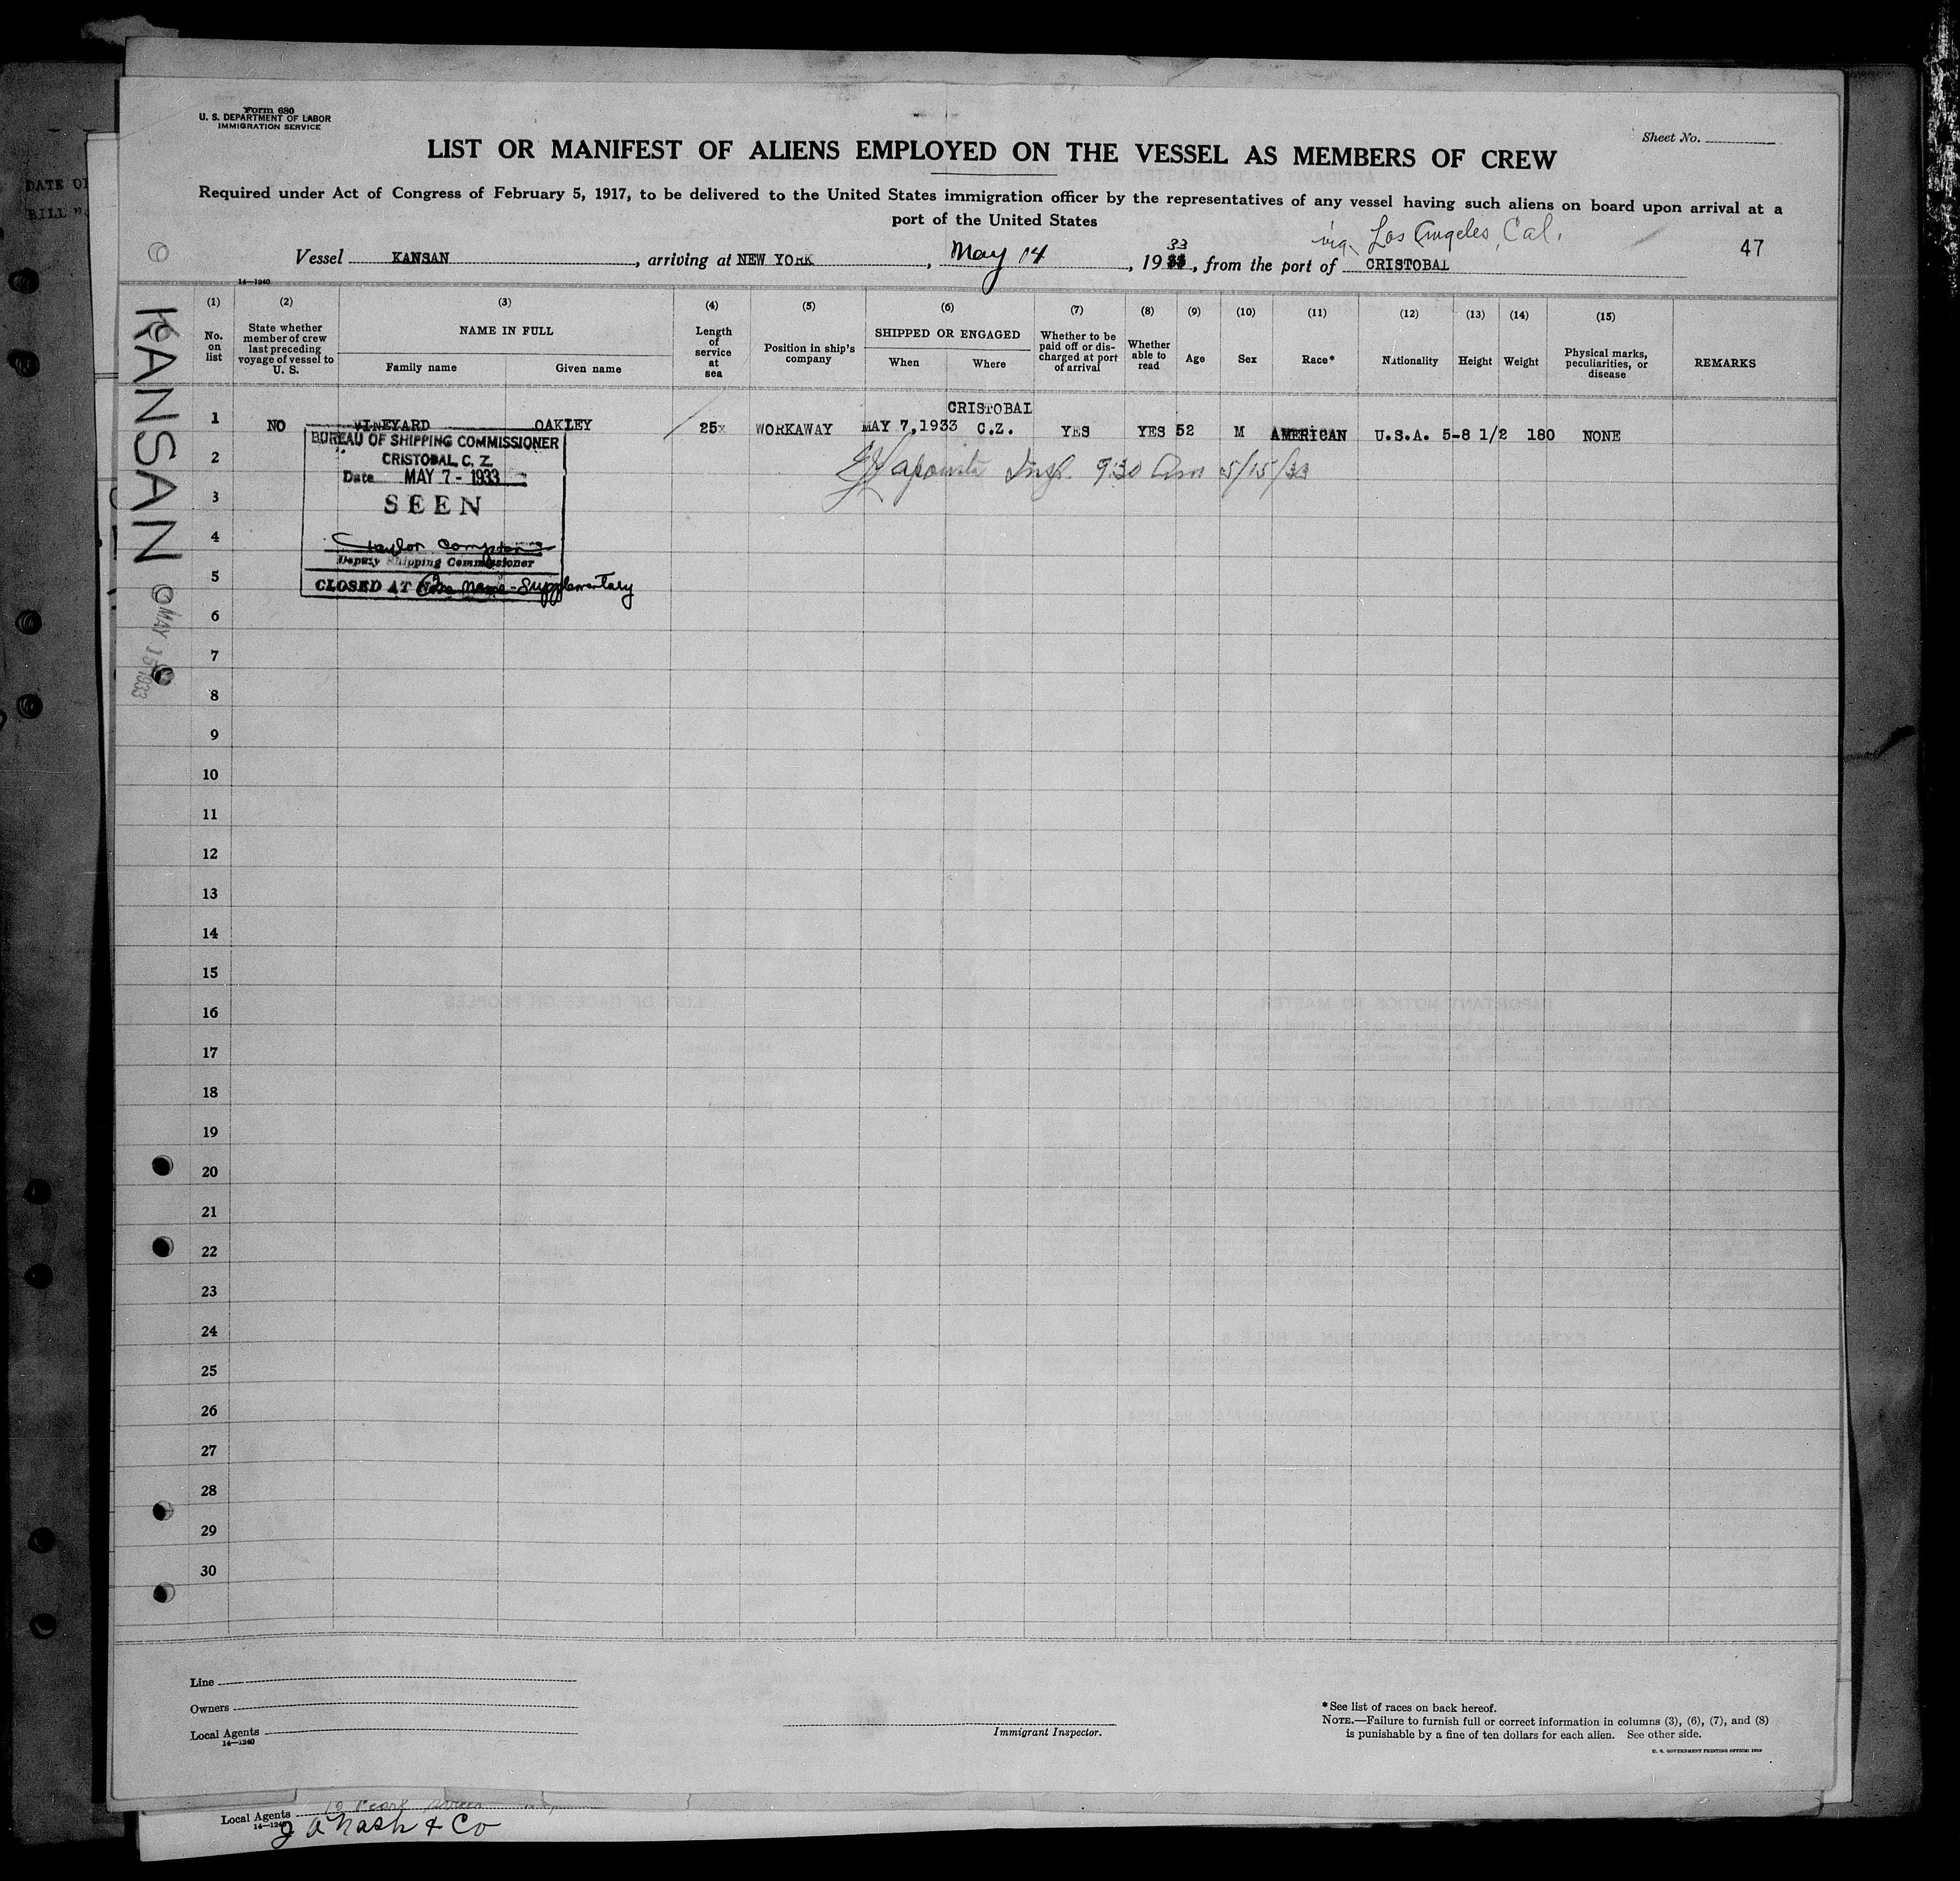 Form 680
U. S. DEPARTMENT OF LABOR
IMMIGRATION SERVICE
Sheet No.
LIST OR MANIFEST OF ALIENS EMPLOYED ON THE VESSEL AS MEMBERS OF CREW
Required under Act of Congress of February 5, 1917, to be delivered to the United States immigration officer by the representatives of any vessel having such aliens on board upon arrival at a
port of the United States
via Los Angeles, Cal.
47
Vessel KANSAN, arriving at NEW YORK, May 14, 1933, from the port of CRISTOBAL
14—1240
(1) (2) (3) (4) (5) (6) (7) (8) (9) (10) (11) (12) (13) (14) (15)
No. on list
State whether member of crew last preceding voyage of vessel to U. S.
NAME IN FULL
Family name
Given name
Length of service at sea
Position in ship's company
SHIPPED OR ENGAGED
When
Where
Whether to be paid off or discharged at port of arrival
Whether able to read
Age
Sex
Race*
Nationality
Height
Weight
Physical marks, peculiarities, or disease
REMARKS
1 NO VINEYARD OAKLEY 25 WORKAWAY MAY 7, 1933 CRISTOBAL C.Z. YES YES 52 M AMERICAN U.S.A. 5-8 1/2 180 NONE
BUREAU OF SHIPPING COMMISSIONER
CRISTOBAL, C. Z.
Date MAY 7 - 1933
SEEN
Deputy Shipping Commissioner
CLOSED AT One name - Supplementary
Lapointe Insp. 9:30 Am 5/15/33
2
3
4
5
6
7
8
9
10
11
12
13
14
15
16
17
18
19
20
21
22
23
24
25
26
27
28
29
30
KANSAN
MAY 15 1933
Line
Owners
Local Agents
14—1240
Immigrant Inspector.
*See list of races on back hereof.
NOTE.—Failure to furnish full or correct information in columns (3), (6), (7), and (8)
is punishable by a fine of ten dollars for each alien. See other side.
U. S. GOVERNMENT PRINTING OFFICE: 1929
Local Agents
14—1240
J A Nash & Co
DATE OF
BILL